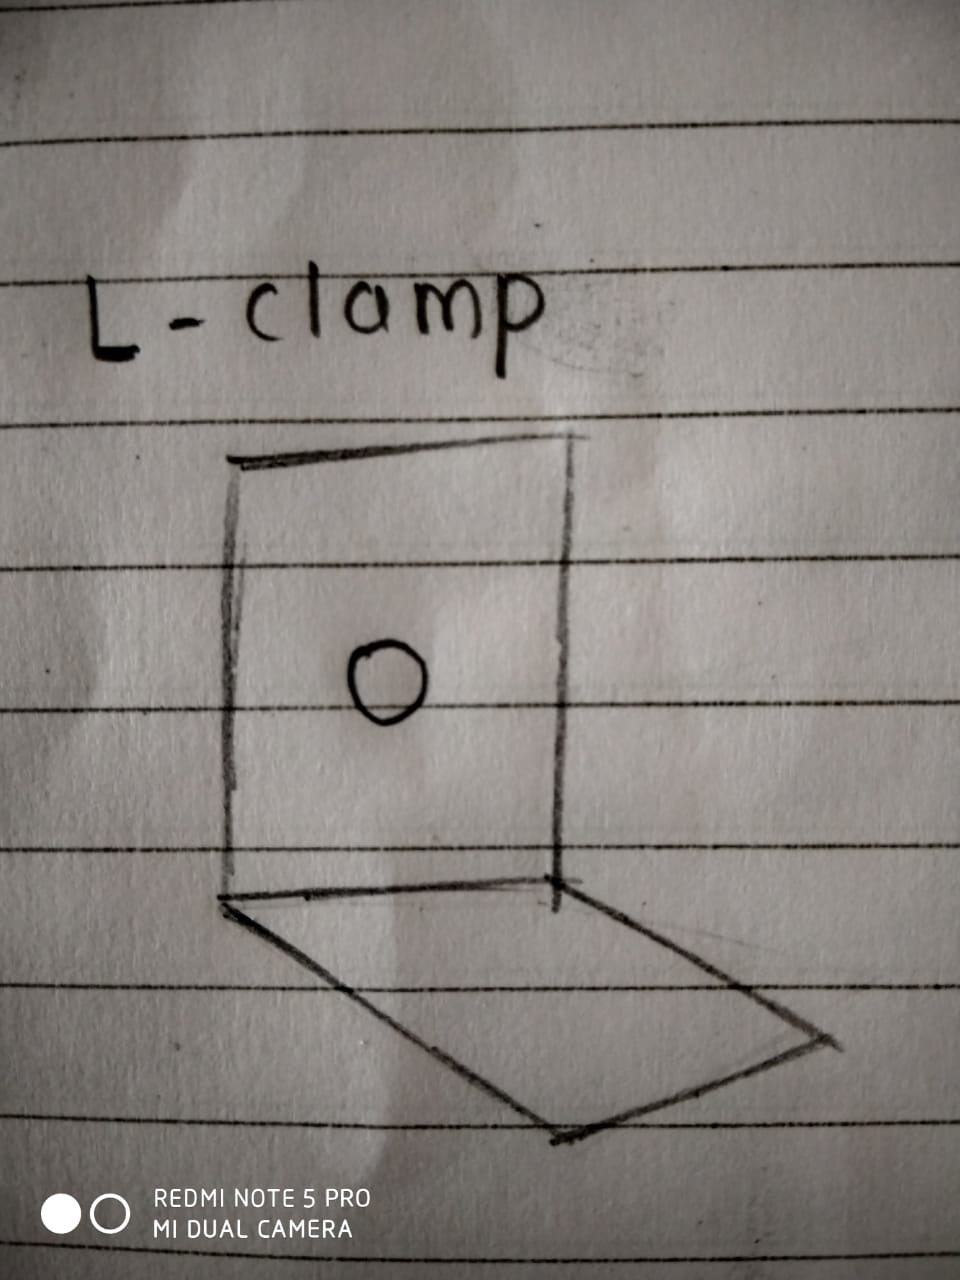 L - clamp
REDMI NOTE 5 PRO
MI DUAL CAMERA